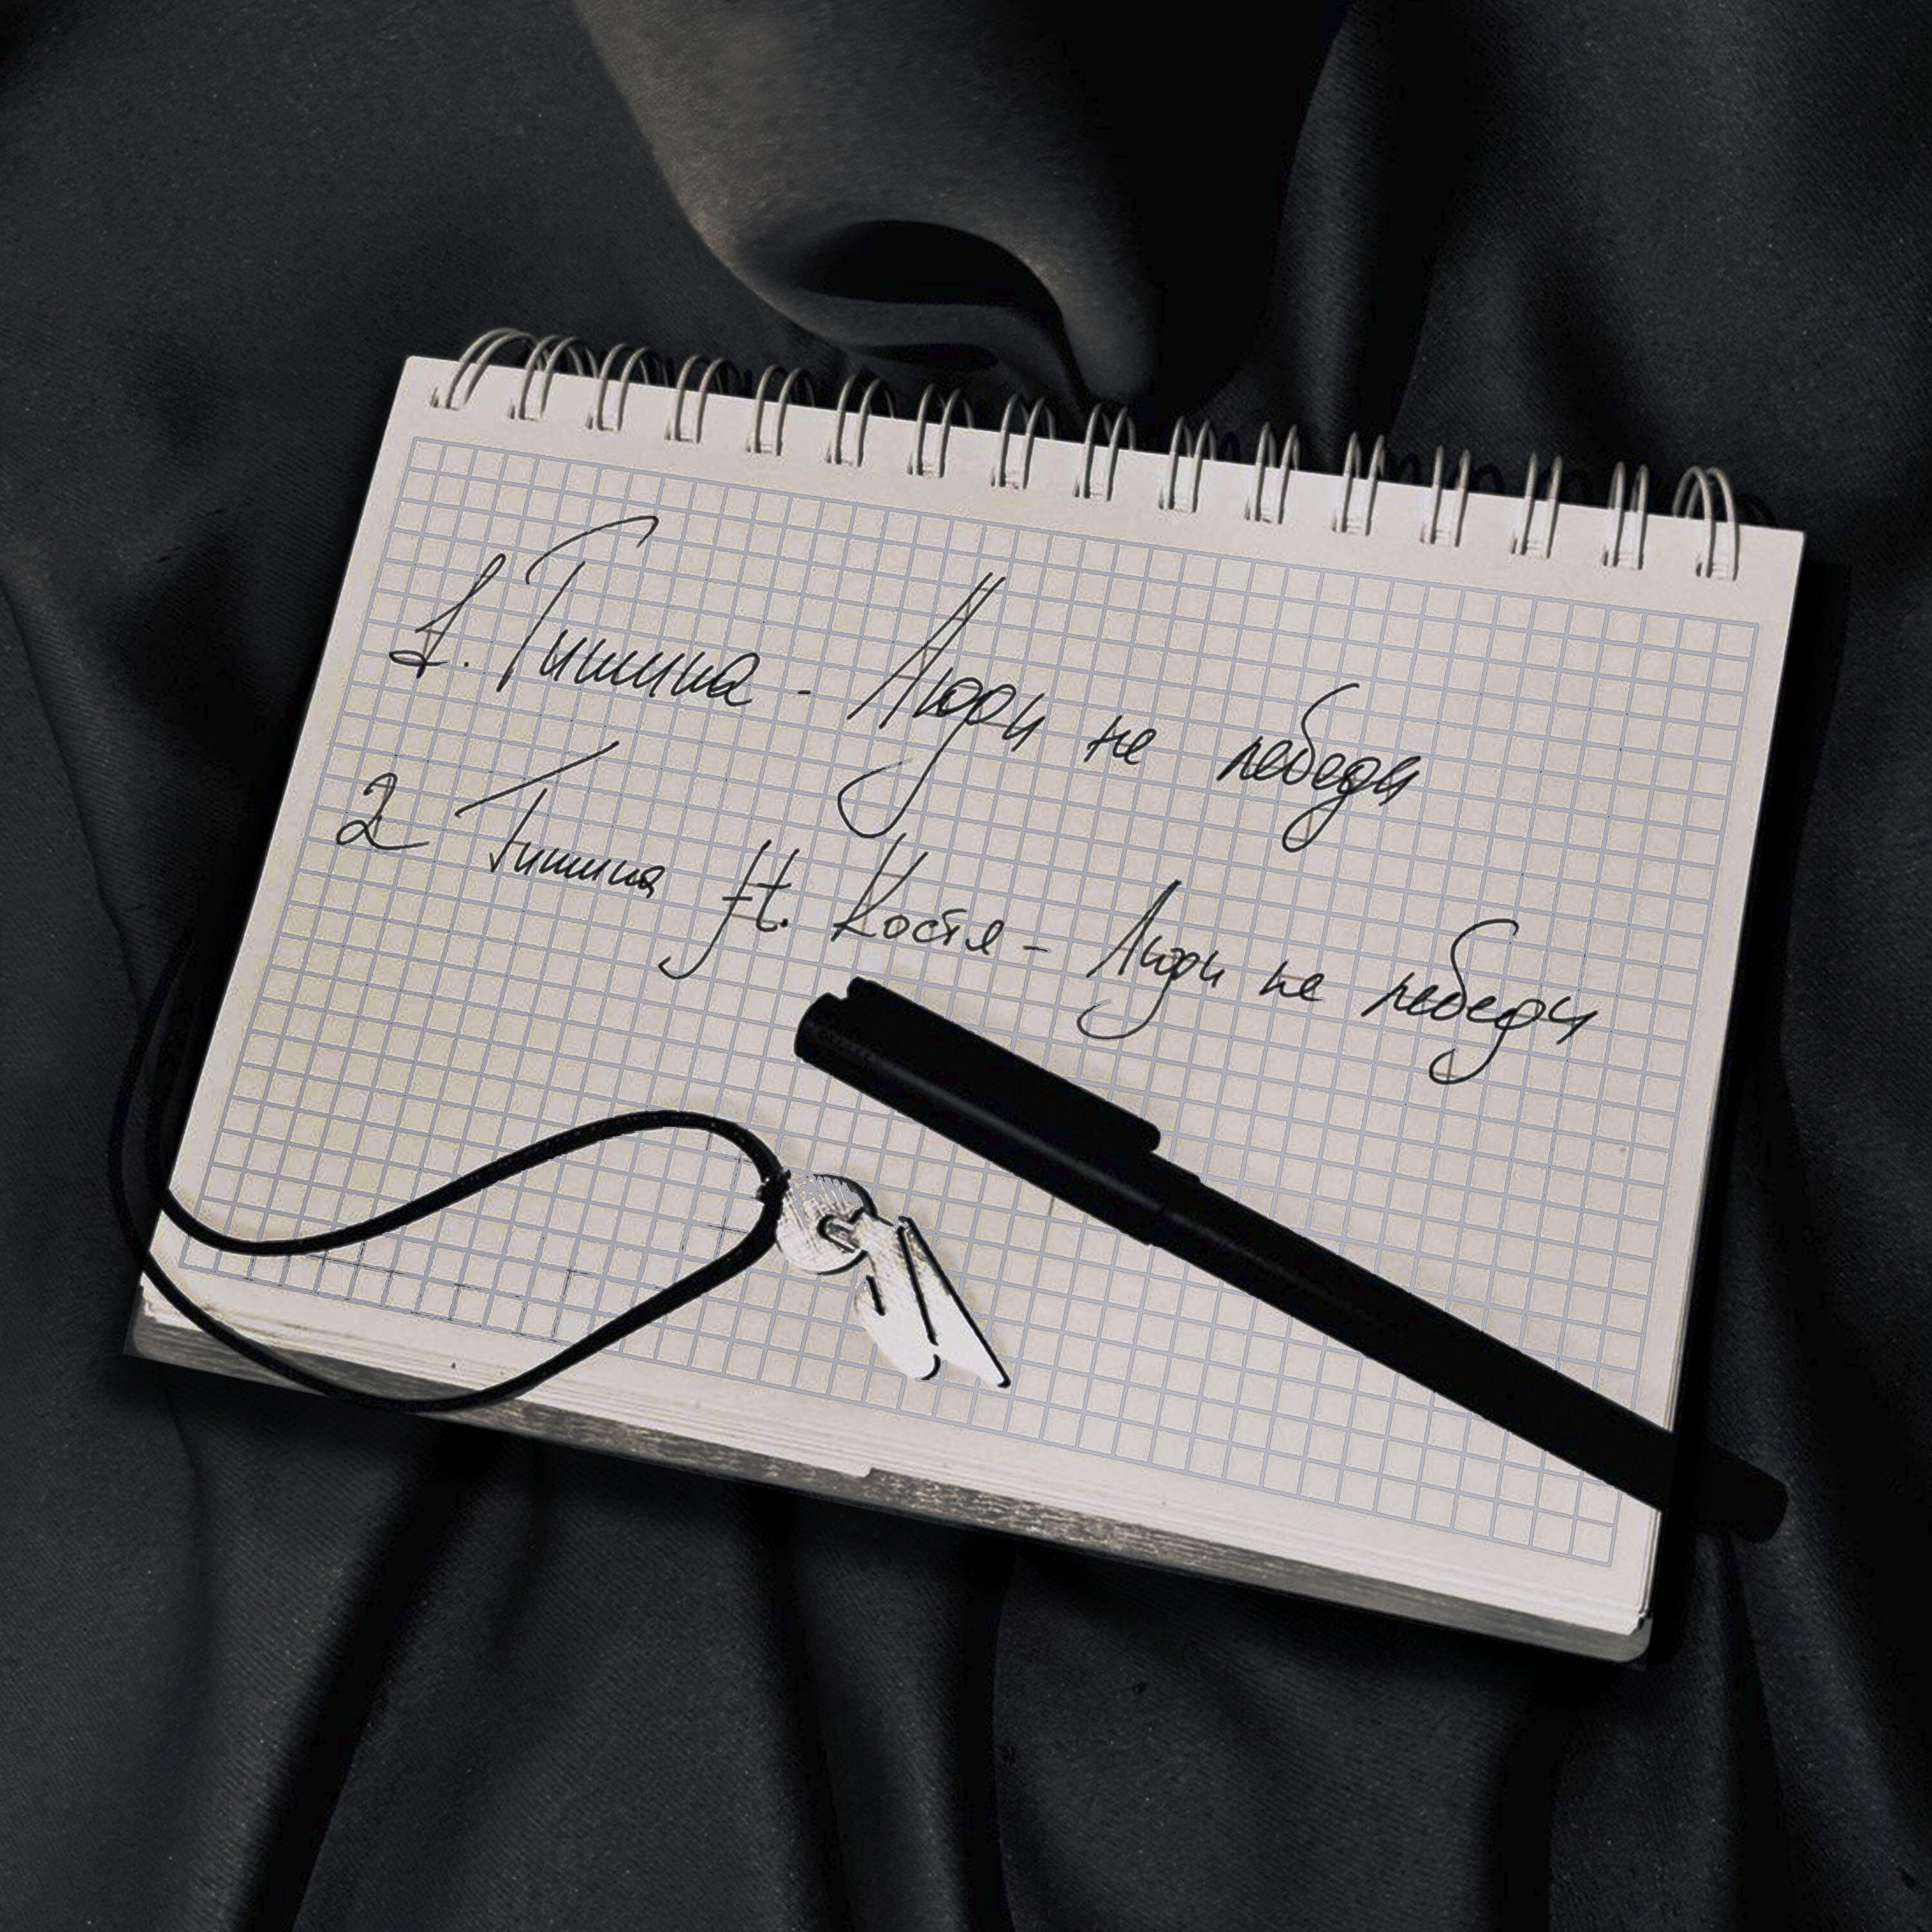 1. Тишина - Люди не лебеди
2 Тишина ft. Костя - Люди не лебеди